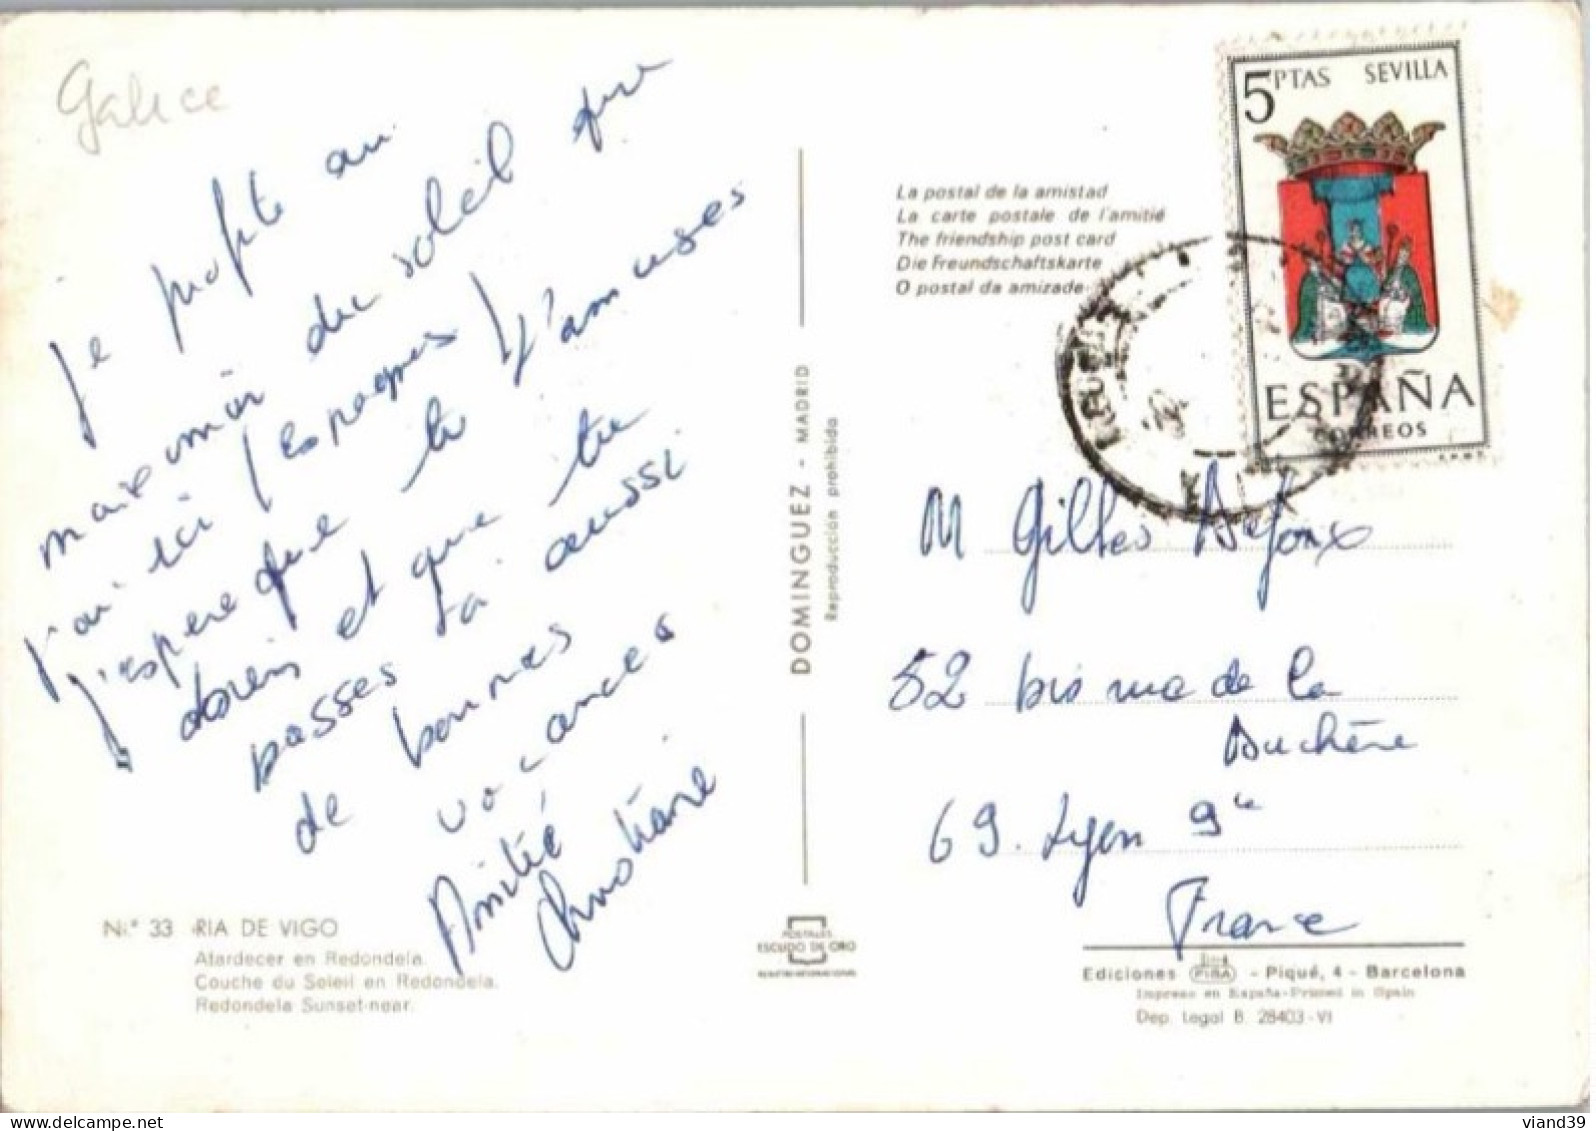 Galice
je profite au
maximum du soleil que
j'ai ici (Espagne)
j'espère que tu t'amuses
bien et que tu
passes toi aussi
de bonnes
vacances
Amitié
Christiane
Nº 33 RIA DE VIGO
Atardecer en Redondela.
Couche du Soleil en Redondela.
Redondela Sunset-near.
DOMINGUEZ - MADRID
Reproducción prohibida
POSTALES
ESCUDO DE ORO
La postal de la amistad
La carte postale de l'amitié
The friendship post card
Die Freundschaftskarte
O postal da amizade
5 PTAS SEVILLA
ESPAÑA
CORREOS
M Gilles
52 bis rue de la
Duchère
69. Lyon 9e
France
Ediciones FISA - Piqué, 4 - Barcelona
Impreso en España-Printed in Spain
Dep. Legal B. 28403-VI
https://www.delcampe.net
viand39